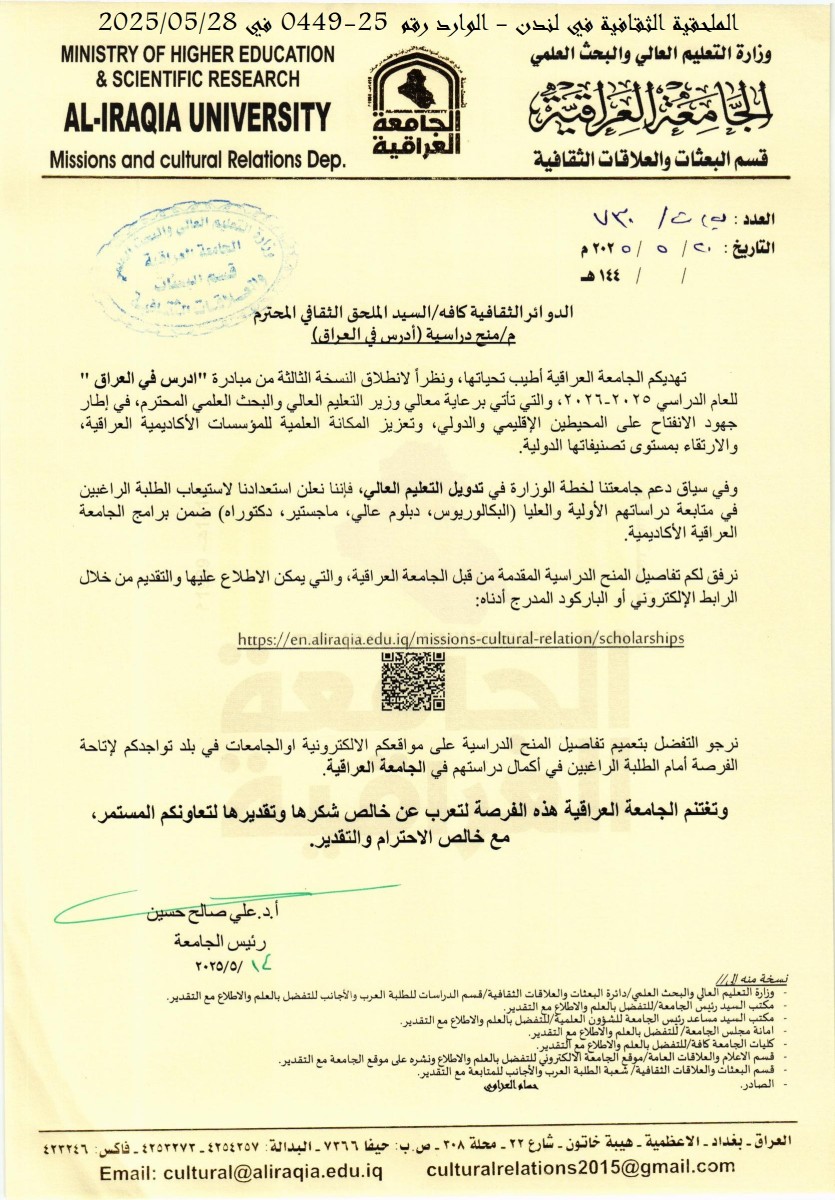 الملحقية الثقافية في لندن - الوارد رقم 25-0449 في 2025/05/28
MINISTRY OF HIGHER EDUCATION
& SCIENTIFIC RESEARCH
AL-IRAQIA UNIVERSITY
Missions and cultural Relations Dep.
AL-IRAQIA UNIVERSITY
الجامعة
العراقية
وزارة التعليم العالي والبحث العلمي
الجامعة العراقية
قسم البعثات والعلاقات الثقافية
العدد : ب ت/ ٧٣٠
التاريخ : ٢٠/ ٥ /٢٠٢٥ م
/ / ١٤٤ هـ
وزارة التعليم العالي والبحث العلمي
الجامعة العراقية
قسم البعثات
والعلاقات الثقافية
الدوائر الثقافية كافه/السيد الملحق الثقافي المحترم
م/منح دراسية (أدرس في العراق)
تهديكم الجامعة العراقية أطيب تحياتها، ونظراً لانطلاق النسخة الثالثة من مبادرة "ادرس في العراق "
للعام الدراسي ٢٠٢٥-٢٠٢٦، والتي تأتي برعاية معالي وزير التعليم العالي والبحث العلمي المحترم، في إطار
جهود الانفتاح على المحيطين الإقليمي والدولي، وتعزيز المكانة العلمية للمؤسسات الأكاديمية العراقية،
والارتقاء بمستوى تصنيفاتها الدولية.
وفي سياق دعم جامعتنا لخطة الوزارة في تدويل التعليم العالي، فإننا نعلن استعدادنا لاستيعاب الطلبة الراغبين
في متابعة دراساتهم الأولية والعليا (البكالوريوس، دبلوم عالي، ماجستير، دكتوراه) ضمن برامج الجامعة
العراقية الأكاديمية.
نرفق لكم تفاصيل المنح الدراسية المقدمة من قبل الجامعة العراقية، والتي يمكن الاطلاع عليها والتقديم من خلال
الرابط الإلكتروني أو الباركود المدرج أدناه:
https://en.aliraqia.edu.iq/missions-cultural-relation/scholarships
نرجو التفضل بتعميم تفاصيل المنح الدراسية على مواقعكم الالكترونية اوالجامعات في بلد تواجدكم لإتاحة
الفرصة أمام الطلبة الراغبين في أكمال دراستهم في الجامعة العراقية.
وتغتنم الجامعة العراقية هذه الفرصة لتعرب عن خالص شكرها وتقديرها لتعاونكم المستمر،
مع خالص الاحترام والتقدير.
أ.د.علي صالح حسين
رئيس الجامعة
١٤ /٢٠٢٥/٥
نسخة منه الى//
- وزارة التعليم العالي والبحث العلمي/دائرة البعثات والعلاقات الثقافية/قسم الدراسات للطلبة العرب والأجانب للتفضل بالعلم والاطلاع مع التقدير.
- مكتب السيد رئيس الجامعة/للتفضل بالعلم والاطلاع مع التقدير.
- مكتب السيد مساعد رئيس الجامعة للشؤون العلمية/للتفضل بالعلم والاطلاع مع التقدير.
- امانة مجلس الجامعة/ للتفضل بالعلم والاطلاع مع التقدير.
- كليات الجامعة كافة/للتفضل بالعلم والاطلاع مع التقدير.
- قسم الاعلام والعلاقات العامة/موقع الجامعة الالكتروني للتفضل بالعلم والاطلاع ونشره على موقع الجامعة مع التقدير.
- قسم البعثات والعلاقات الثقافية/ شعبة الطلبة العرب والأجانب للمتابعة مع التقدير.
- الصادر.
حسام العزاوي
العراق ـ بغداد ـ الاعظمية ـ هيبة خاتون ـ شارع ٢٢ ـ محلة ٣٠٨ ـ ص.ب: حيفا ٧٣٦٦ ـ البدالة: ٤٢٥٤٢٥٧ ـ ٤٢٥٣٢٧٣ ـ فاكس: ٤٢٣٢٤٦
Email: cultural@aliraqia.edu.iq culturalrelations2015@gmail.com